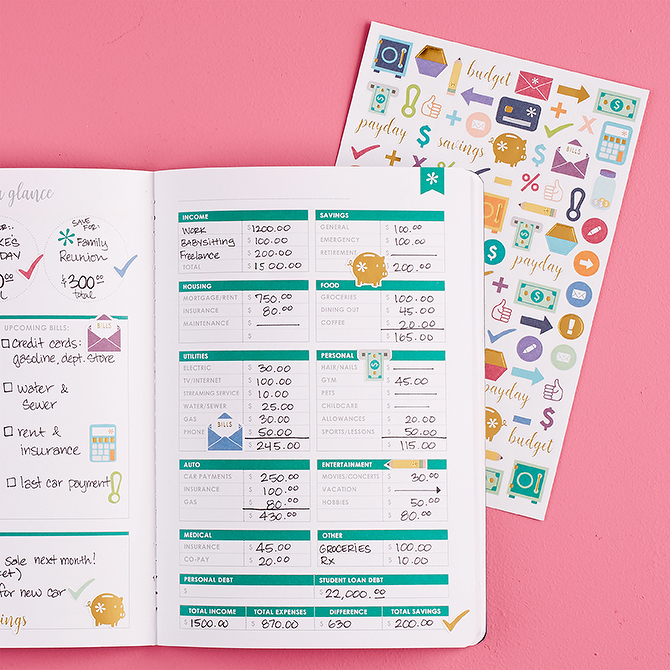 a glance
FOR:
KE'S
DAY
00
al
SAVE
FOR:
* Family
Reunion
$300.00
total
UPCOMING BILLS:
BILLS
Credit cards:
gasoline, dept. store
water &
sewer
rent &
insurance
last car payment
sale next month!
for new car
ings
INCOME
WORK $1200.00
BABYSITTING $ 100.00
Freelance $ 200.00
TOTAL $ 1500.00
SAVINGS
GENERAL $ 100.00
EMERGENCY $ 100.00
RETIREMENT
$ 200.00
HOUSING
MORTGAGE/RENT $ 750.00
INSURANCE $ 80.00
MAINTENANCE $
$
FOOD
GROCERIES $ 100.00
DINING OUT $ 45.00
COFFEE $ 20.00
$ 165.00
UTILITIES
ELECTRIC $ 30.00
TV/INTERNET $ 100.00
STREAMING SERVICE $ 10.00
WATER/SEWER $ 25.00
GAS $ 30.00
PHONE $ 50.00
BILLS
$ 245.00
PERSONAL
HAIR/NAILS $
GYM $ 45.00
PETS $
CHILDCARE $
ALLOWANCES $ 20.00
SPORTS/LESSONS $ 50.00
$ 115.00
AUTO
CAR PAYMENTS $ 250.00
INSURANCE $ 100.00
GAS $ 80.00
$ 430.00
ENTERTAINMENT
MOVIES/CONCERTS $ 30.00
VACATION $
HOBBIES $ 50.00
$ 80.00
MEDICAL
INSURANCE $ 45.00
CO-PAY $ 20.00
OTHER
GROCERIES $ 100.00
RX $ 10.00
PERSONAL DEBT
$
STUDENT LOAN DEBT
$ 22,000.00
TOTAL INCOME TOTAL EXPENSES DIFFERENCE TOTAL SAVINGS
$ 1500.00 $ 870.00 $ 630 $ 200.00
budget
payday
savings
BILLS
payday
payday
payday
budget